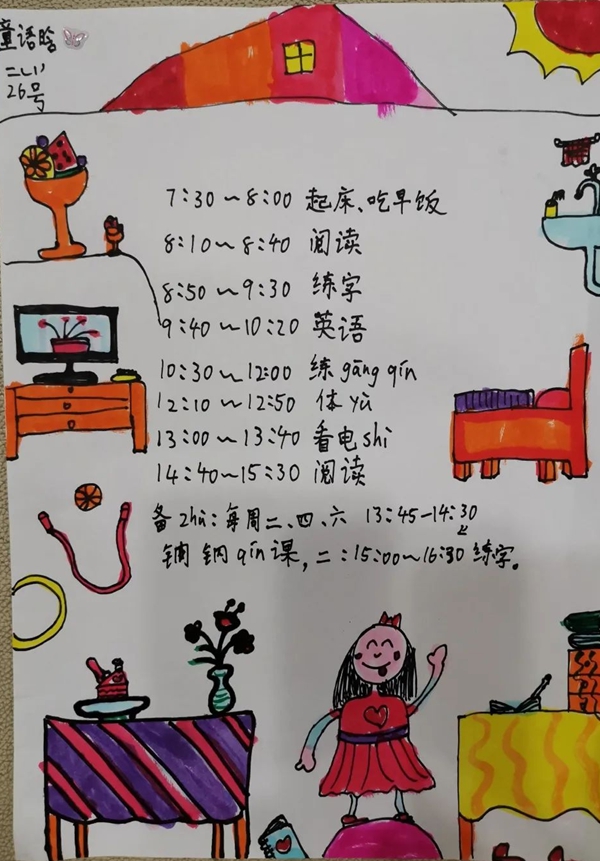 童语晗
二、1
26号
7:30~8:00 起床、吃早饭
8:10~8:40 阅读
8:50~9:30 练字
9:40~10:20 英语
10:30~12:00 练gāng qín
12:10~12:50 体yù
13:00~13:40 看电shì
14:40~15:30 阅读
备zhù:每周二、四、六 13:45-14:30
钢qín课,二:15:00~16:30 练字。